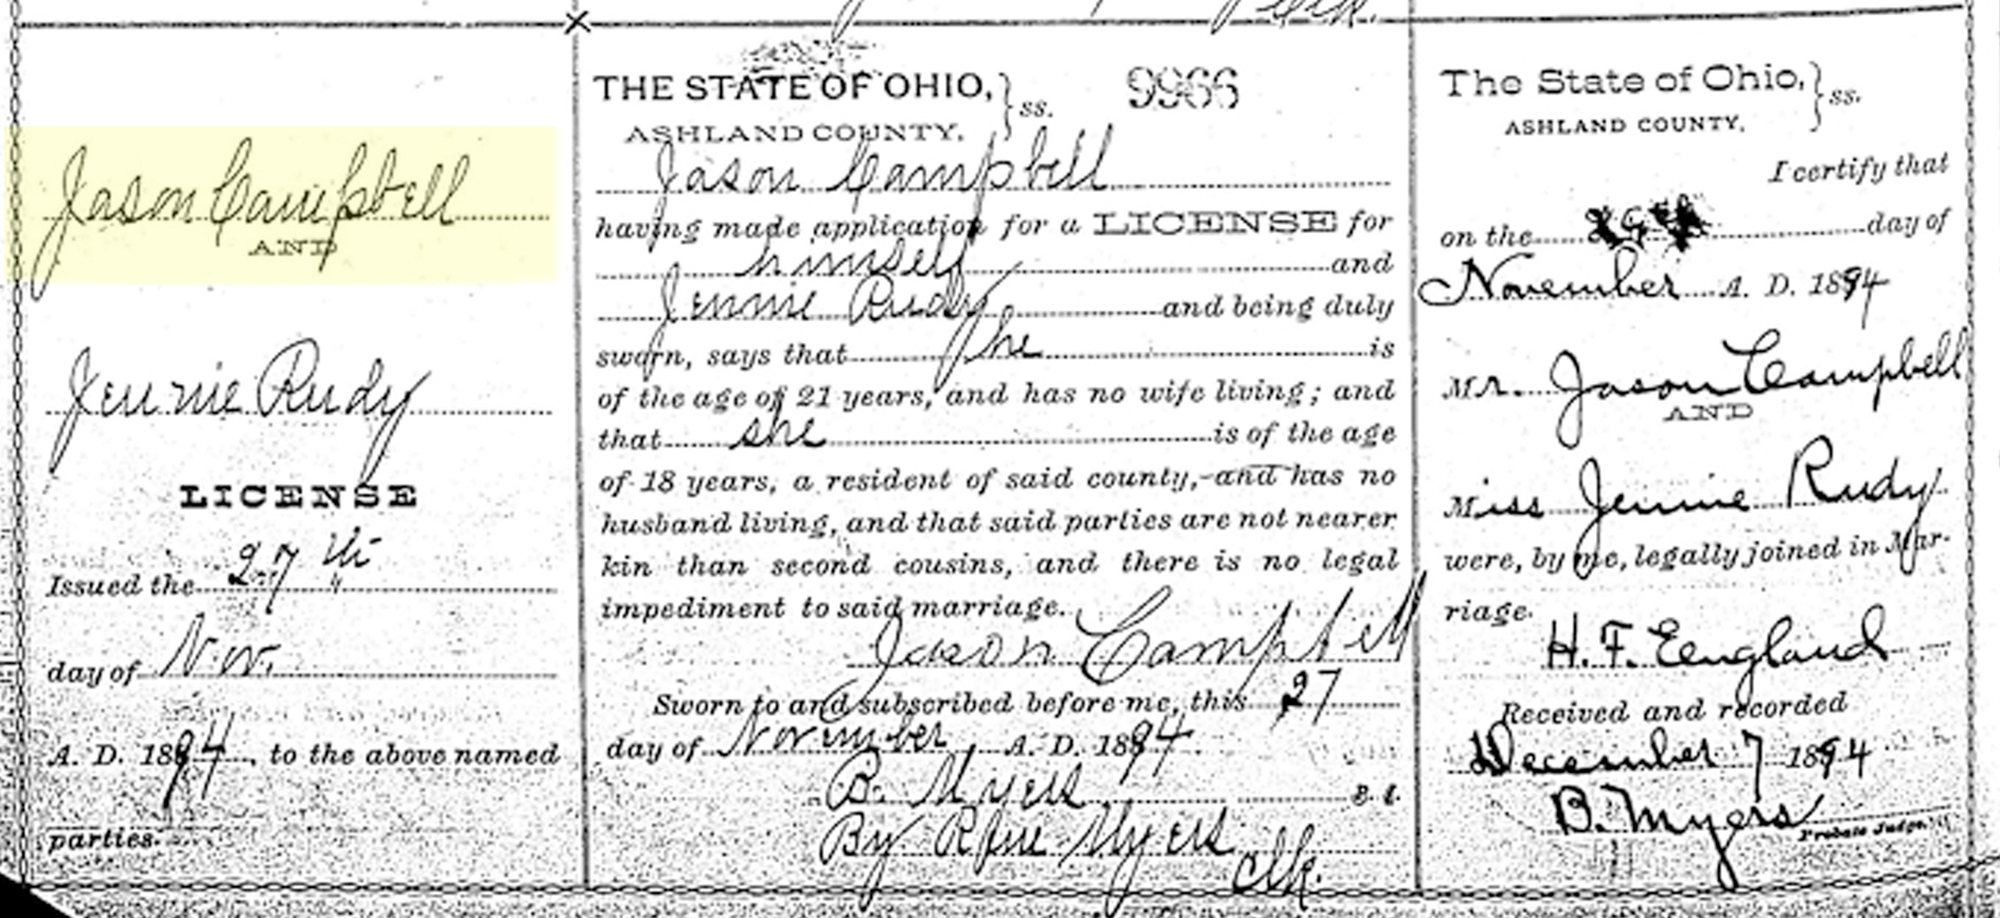 Clk.
Jason Campbell
AND
Jennie Rudy
LICENSE
Issued the 27th
day of Nov.
A. D. 1894, to the above named
parties.
THE STATE OF OHIO, } ss. 9966
ASHLAND COUNTY,
Jason Campbell
having made application for a LICENSE for
himself and
Jennie Rudy and being duly
sworn, says that he is
of the age of 21 years, and has no wife living; and
that she is of the age
of 18 years, a resident of said county, and has no
husband living, and that said parties are not nearer
kin than second cousins, and there is no legal
impediment to said marriage.
Jason Campbell
Sworn to and subscribed before me, this 27
day of November A. D. 1894
B. Myers P. J.
By Myers Clk.
The State of Ohio, } ss.
ASHLAND COUNTY,
I certify that
on the day of
November A. D. 1894
Mr. Jason Campbell
AND
Miss Jennie Rudy
were, by me, legally joined in Mar-
riage.
H. F. Eengland
Received and recorded
December 7 1894
B. Myers Probate Judge.